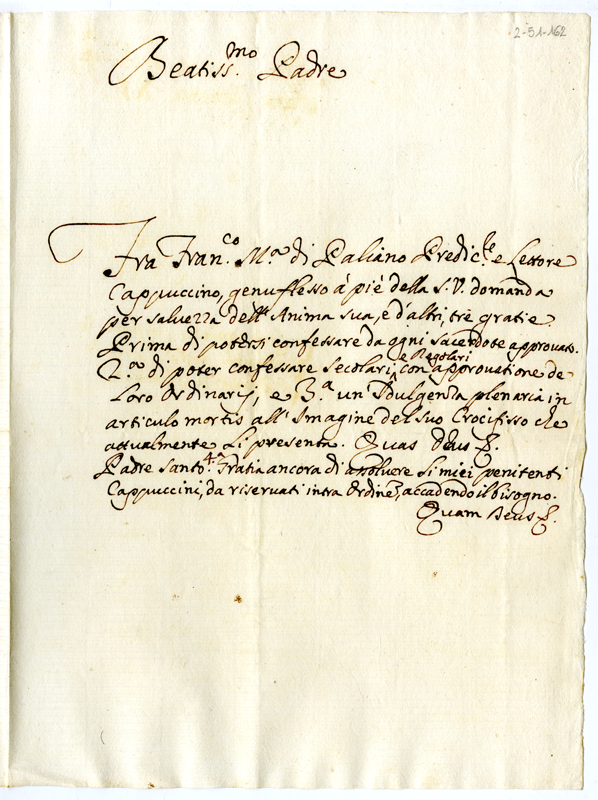 2-51-162
Beatiss.mo Padre
Fra Fran.co M.a di Paliano Predic.re e Lettore
Cappuccino, genuflesso a' piè della S.V. domanda
per salvezza dell'Anima sua, e d'altri, tre gratie.
Prima di potersi confessare da ogni sacerdote approvato.
e Regolari
2.a di poter confessare secolari, con approvatione de
Loro Ordinarij, e 3.a un Indulgenza plenaria in
articulo mortis all'Imagine del suo Crocifisso che
attualmente Li presenta. Quas Deus
Padre Santo 4.a Gratia ancora di assoluere Li miei penitenti
Cappuccini, da riservati intra Ordine, accadendo il bisogno.
Quam Deus